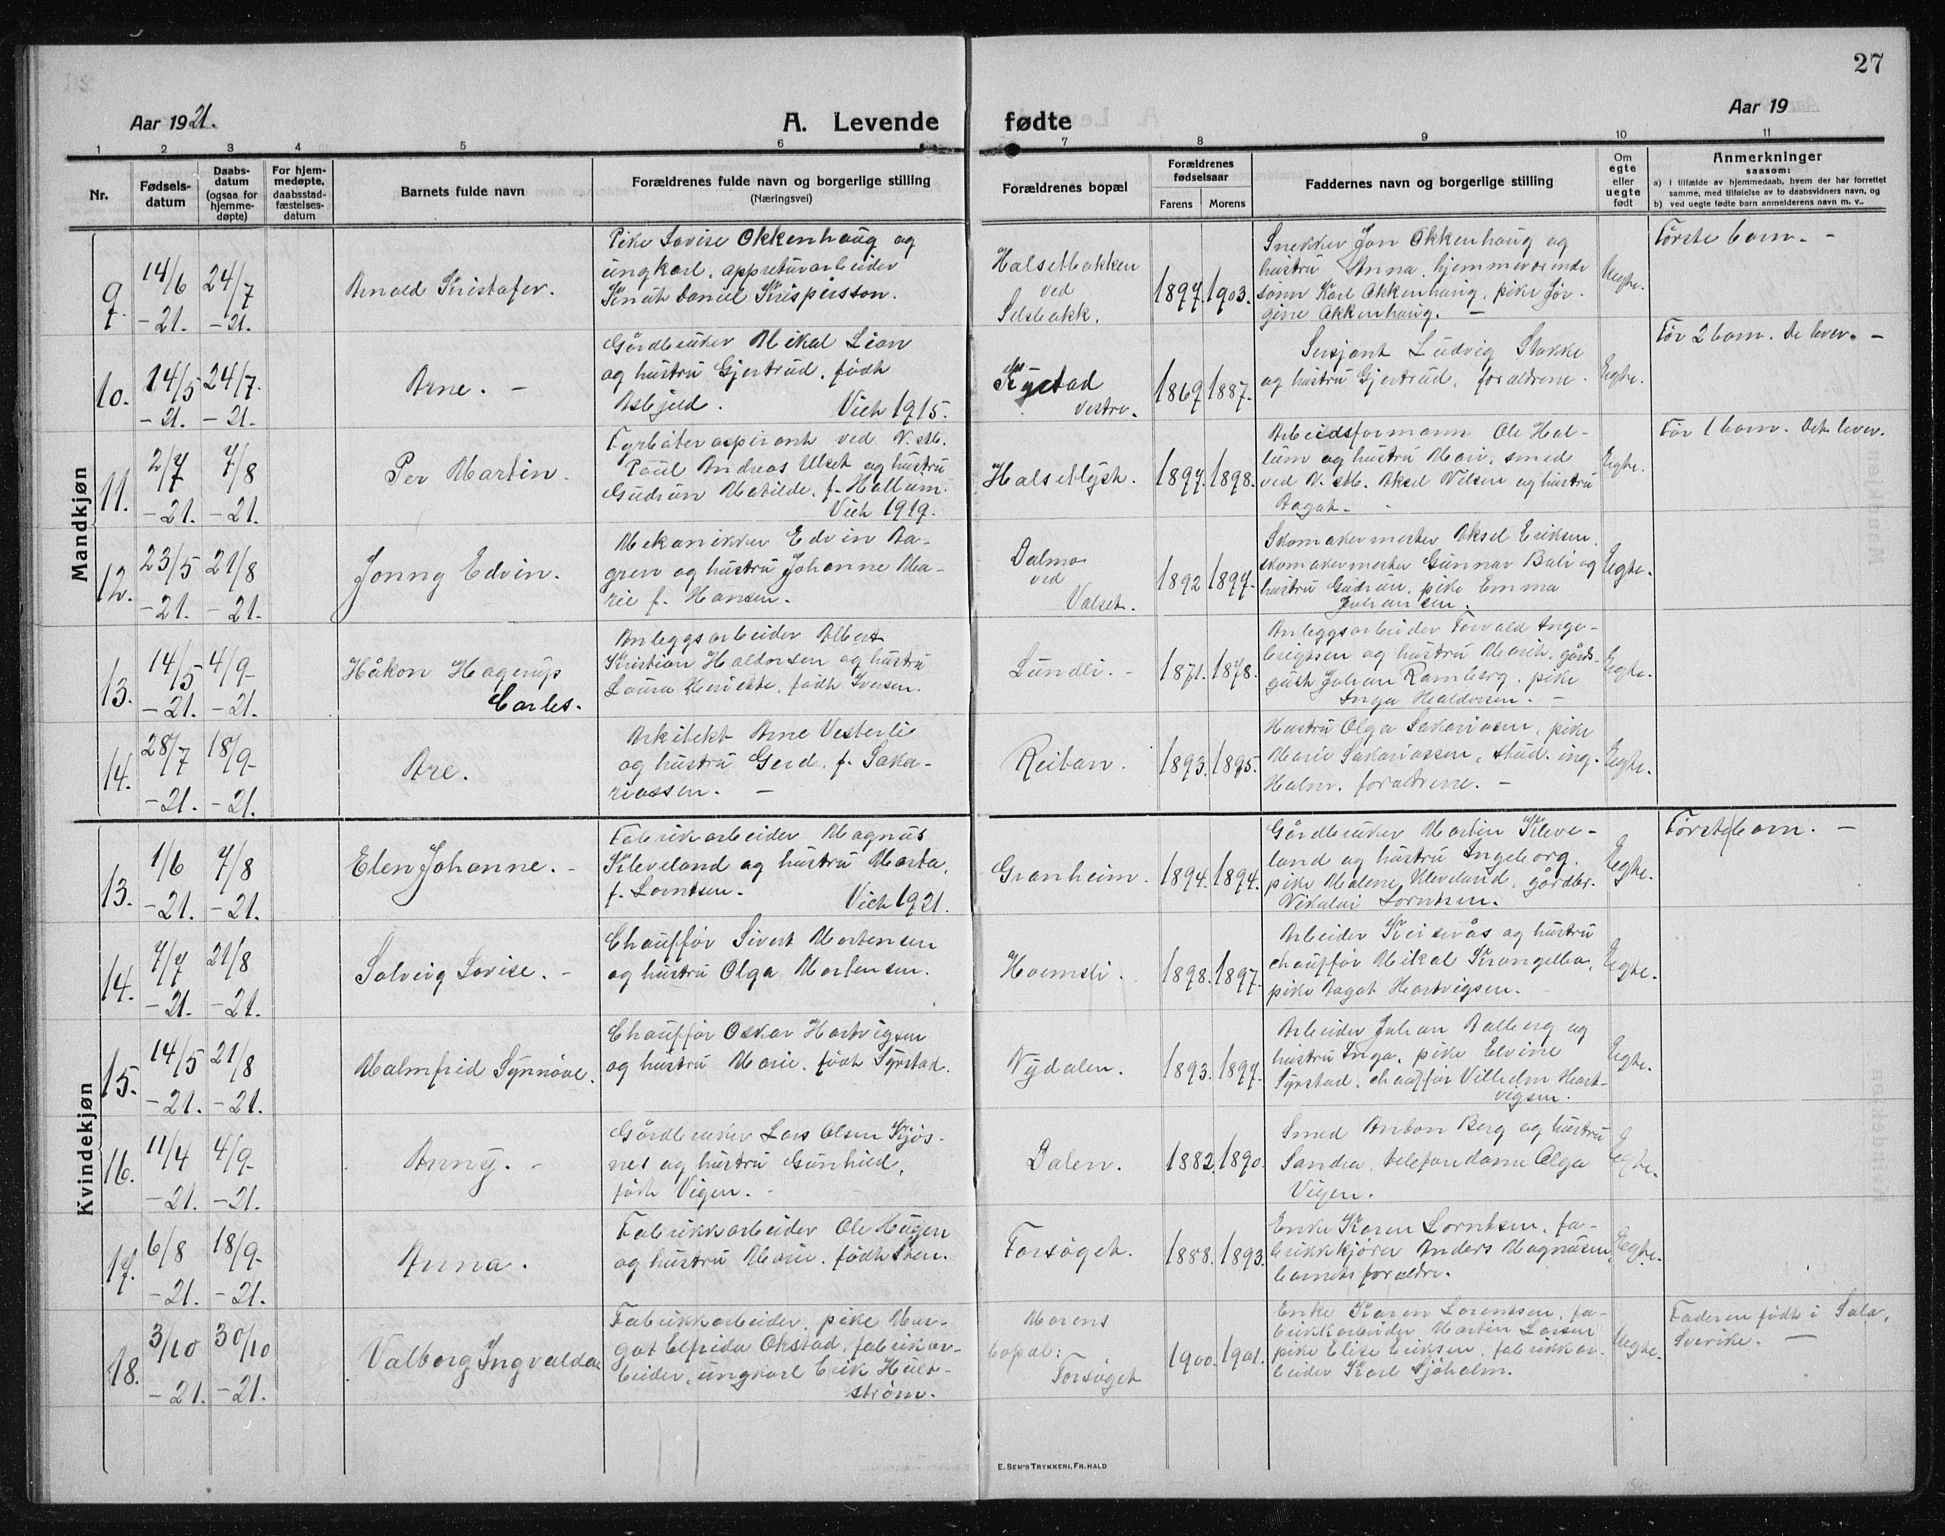 27
Aar 1921.
A. Levende
fødte
Aar 19
1 2 3 4 5 6 7 8 9 10 11
Nr.
Fødsels-
datum
Daabs-
datum
(ogsaa for
hjemme-
døpte)
For hjem-
medøpte,
daabsstad-
fæstelses-
datum
Barnets fulde navn
Forældrenes fulde navn og borgerlige stilling
(Næringsvei)
Forældrenes bopæl
Forældrenes
fødselsaar
Farens Morens
Faddernes navn og borgerlige stilling
Om
egte
eller
uegte
født
Anmerkninger
saasom:
a) I tilfælde av hjemmedaab, hvem der har forrettet
samme, med tilføielse av to daabsvidners navn, og
b) ved uegte fødte barn anmelderens navn m. v..
Mandkjøn
9.
14/6
-21.
24/7
-21.
Arnold Kristofer.
Pike Lovise Okkenhaug og
ungkarl, appreturarbeider
Knut Daniel Krispersson.
Halsetbakken
ved
Selsbakk.
1897. 1903.
Snekker Jon Okkenhaug og
hustru Anna, hjemmeværende
sønn Karl Okkenhaug, pike Jør-
gine Okkenhaug. -
Uegte.
Første barn. -
10.
14/5
-21.
24/7.
-21.
Arne. -
Gårdbruker Mikal Lian
og hustru Gjertrud, født
Asbjeld. Viet 1915.
Kystad
vestre.
1869 1887.
Sersjant Ludvig Stokke
og hustru Gjertrud, forældrene.
Egte.
Før 2 barn. De lever. -
11.
2/7
-21.
7/8
-21.
Per Martin.
Fyrbøteraspirant ved N. stb.
Paul Andreas Ulset og hustru
Gudrun Matilde, f. Hallum.
Viet 1919.
Halsetlyst.
1897. 1898.
Arbeidsformann Ole Hal-
lum og hustru Mari, smed
ved N. stb. Aksel Nilsen og hustru
Dagot.
Egte.
Før 1 barn. Det lever.
12.
23/5
-21.
21/8
-21.
Jonny Edvin.
Mekanikker Edvin Aa-
gren og hustru Johanne Ma-
rie f. Hansen.
Dalmo
ved
Valset.
1892 1897.
Skomakermester Aksel Eriksen,
skomakermester Gunnar Buli og
hustru Gudrun, pike Emma
Johansen.
Egte.
13.
14/5
-21.
4/9-
-21.
Håkon Hagerup
Carles.
Anleggsarbeider Albert
Kristian Haldorsen og hustru
Laura Heriette, født Iversen.
Lundli. -
1871. 1878.
Anleggsarbeider Torvald Inge-
brigtsen og hustru Marit, gårds-
gutt Johan Ramberg, pike
Inga Haldorsen. -
Egte.
14.
28/7
-21.
18/9-
-21.
Are.
Arkitekt Arne Vesterlie
og hustru Gerd, f. Saka-
riassen. -
Reitan.
1893. 1895.
Hustru Olga Sakariasen, pike
Marie Sakariassen, stud. ing.
Holm, forældrene. -
Egte.
Kvindekjøn
13.
1/6
-21.
7/8
-21.
Elen Johanne. -
Fabrikarbeider Magnus
Kleveland og hustru Marta,
f. Lorntsen. Viet 1921.
Granheim.
1894. 1894.
Gårdbruker Martin Kleve-
land og hustru Ingeborg.
pike Malene Kleveland, gårdbr.
Nikolai Lorntsen.
Egte.
Første barn. -
14.
7/7
-21.
21/8
-21.
Solveig Lovise. -
Chauffør Sivert Mortensen
og hustru Olga Mortensen.
Hoemsli.
1898. 1897.
Arbeider Kreiservås og hustru
chauffør Mikal Krangelbo,
pike Dagot Hartvigsen.
Egte.
15.
14/5
-21.
21/8
-21.
Malmfrid Synnøve.
Chauffør Oskar Hartvigsen
og hustru Marie, født Syrstad.
Nydalen.
1893. 1897.
Arbeider Johan Aalberg og
hustru Inga, pike Elvine
Syrstad, chauffør Vilhelm Hart-
vigsen.
Egte.
16.
11/4
-21.
4/9-
-21.
Anny. -
Gårdbruker Lars Olsen Kjøs-
nes og hustru Gunhild,
født Vigen. -
Dalen.
1882. 1890.
Smed Anton Berg og hustru
Sandra, telefondame Olga
Vigen.
Egte.
17.
6/8
-21.
18/9-
-21.
Anna.
Fabrikkarbeider Ole Haugen
og hustru Marie, født Sten.
Forsøget.
1888. 1893.
Enke Karen Lorntsen, fa-
brikkkjører Anders Magnussen,
barnets forældre.
Egte.
18.
3/10
-21.
30/10
-21.
Valborg Ingvalda
Fabrikkarbeider, pike Mar-
got Elfrida Okstad, fabrikar-
beider, ungkarl Erik Hult-
strøm.
Morens
bopæl:
Forsøget
1900. 1901.
Enke Karen Lorentsen, fa-
brikkarbeider Martin Larsen
pike Elise Eriksen, fabrikkar-
beider Karl Sjøholm.
Uegte.
Faderen født i Sala,
Sverike. -
E. SEM'S TRYKKERI, FR. HALD